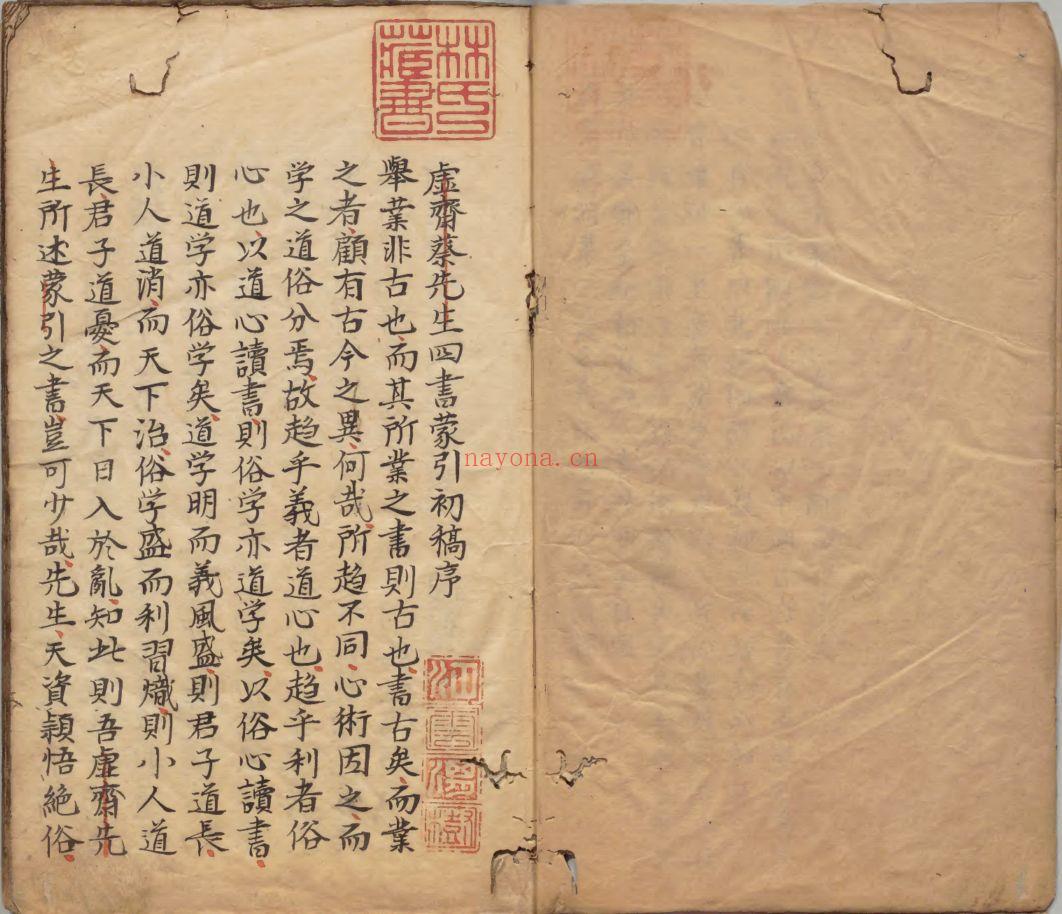 虛齋蔡先生四書蒙引初稿序
舉業非古也而其所業之書則古也書古矣而業
之者顧有古今之異何哉所趋不同心術因之而
学之道俗分焉故趋乎義者道心也趋乎利者俗
心也以道心讀書則俗学亦道学矣以俗心讀書
則道学亦俗学矣道学明而義風盛則君子道長
小人道消而天下治俗学盛而利習熾則小人道
長君子道憂而天下日入於亂知此則吾虛齋先
生所述蒙引之書豈可少哉先生天資穎悟絕俗
林氏藏書
nayona.cn